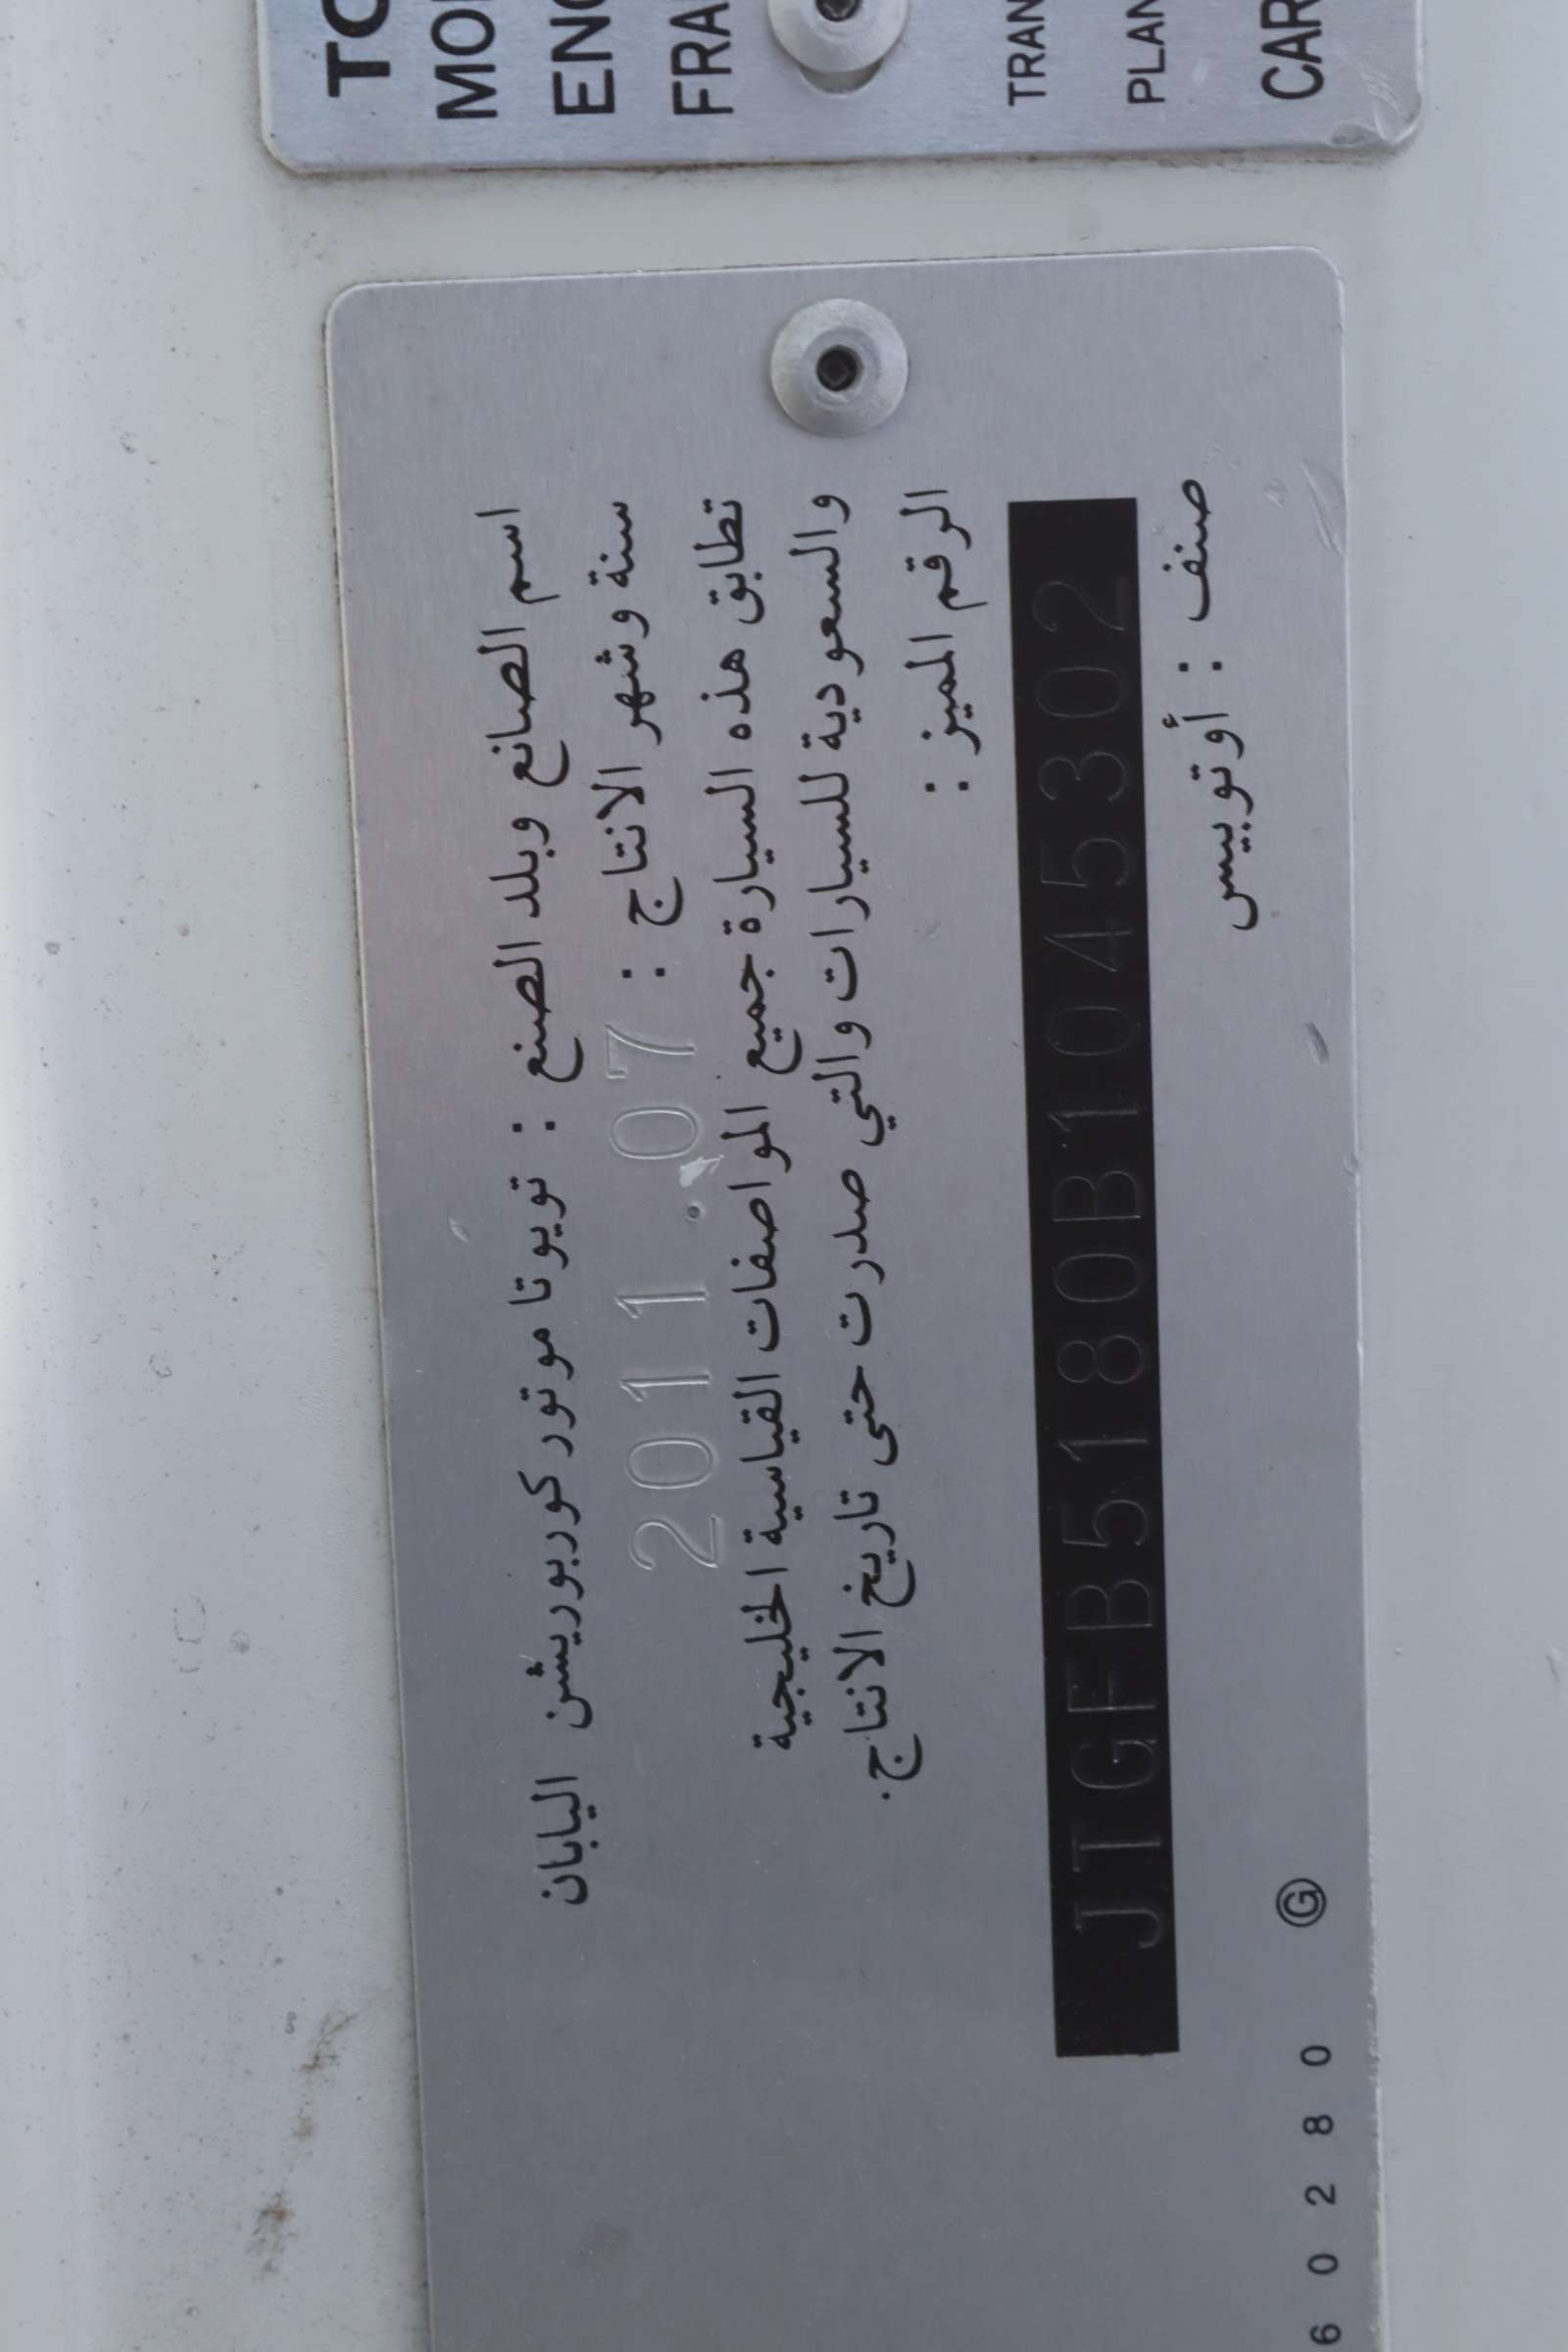 TO
MOD
ENG
FRA
TRAN
PLAN
CAR
اسم الصانع وبلد الصنع : تويوتا موتور كوربوريشن اليابان
سنة وشهر الانتاج : 2011.07
تطابق هذه السيارة جميع المواصفات القياسية الخليجية
والسعودية للسيارات والتي صدرت حتى تاريخ الانتاج.
الرقم المميز :
JTGFB5180B1045302
صنف : أوتوبيس
60280 G